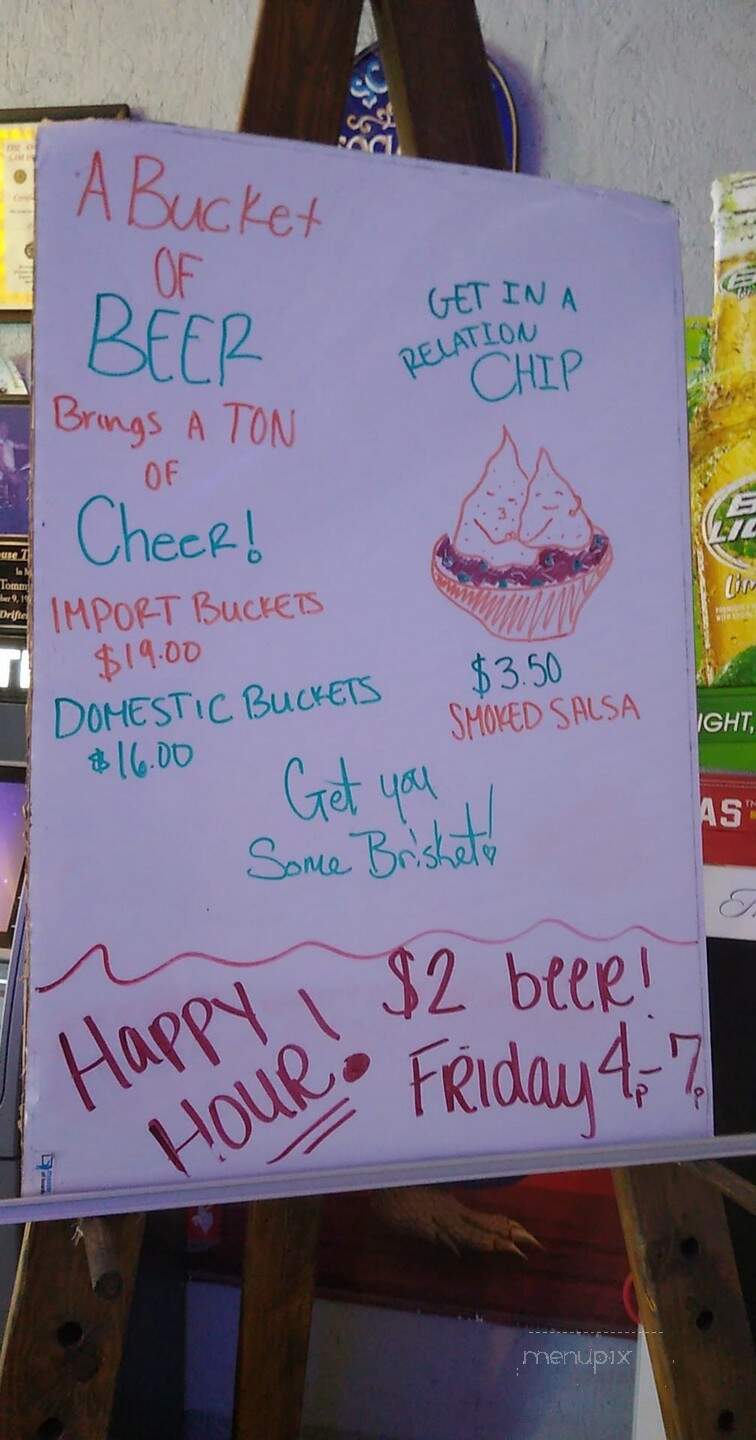 A Bucket
OF
BEER
Brings A TON
OF
Cheer!
IMPORT BUCKETS
$19.00
DOMESTIC BUCKETS
$16.00
GET IN A
RELATION
CHIP
$3.50
SMOKED SALSA
Get you
Some Brisket!
HAPPY
HOUR!
$2 beer!
FRiday 4p-7p
Lim
IGHT,
AS
Tommy
Drifte
menupix